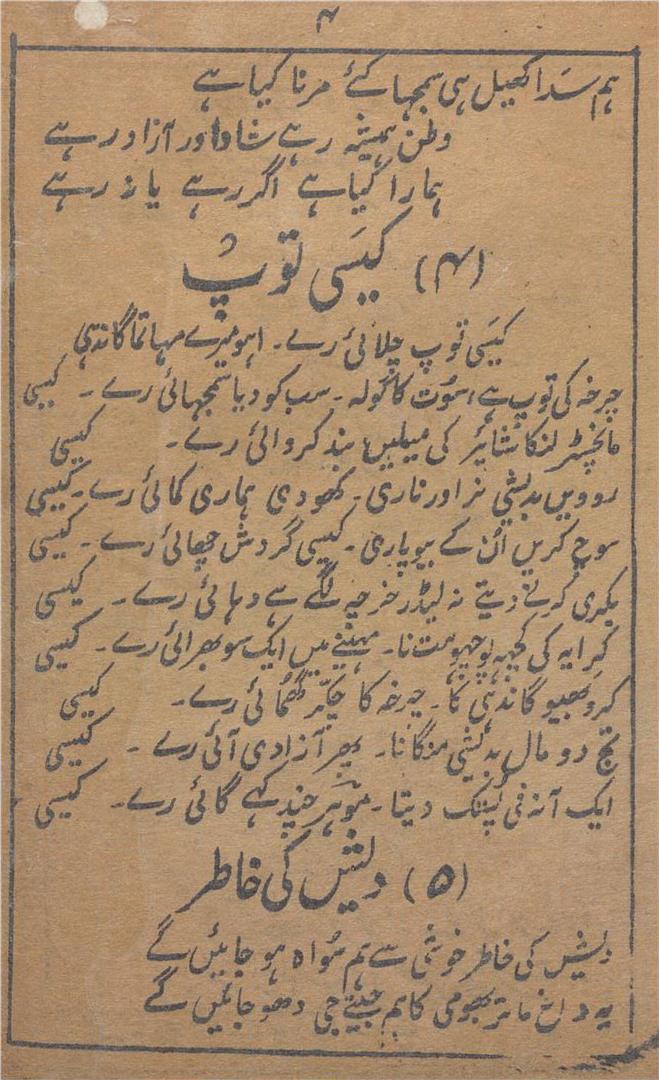 ۴
ہم سدا کھیل ہی سمجھا کئے مرنا کیا ہے
وطن ہمیشہ رہے شاد اور آزاد رہے
ہمارا کیا ہے اگر رہے یا نہ رہے
(۴) کیسی توپ
کیسی توپ چلائی رے۔ اہو میرے مہاتما گاندہی
چرخہ کی توپ ہے، سوت کا گولہ۔ سب کو دیا سمجہائی رے۔ کیسی
مانچسٹر لنکاشائر کی میلیں بند کروائی رے۔ کیسی
روویں بدیشی نر اور ناری۔ کھو دی ہماری کمائی رے۔ کیسی
سوچ کریں اُن کے بیوپاری۔ کیسی گردش چھائی رے۔ کیسی
بکری کرنے دیتے نہ لیڈر خرچہ لگے ہے دہائی رے۔ کیسی
کرایہ کی کچہہ پوچہو مت نا۔ مہینے میں ایک سو بھرائی رے۔ کیسی
گاندہی کا۔ چرخہ کا چکّر گھمائی رے۔ کیسی
تج دو مال بدیشی منگانا۔ پھر آزادی آئی رے۔ کیسی
ایک آنہ فی دیتا۔ موہر چند کہے گائی رے۔ کیسی
(۵) دیش کی خاطر
دیش کی خاطر خوشی سے ہم سُواہ ہو جائیں گے
یہ داغ ماتر بھومی کا ہم جیتے جی دھو جائیں گے